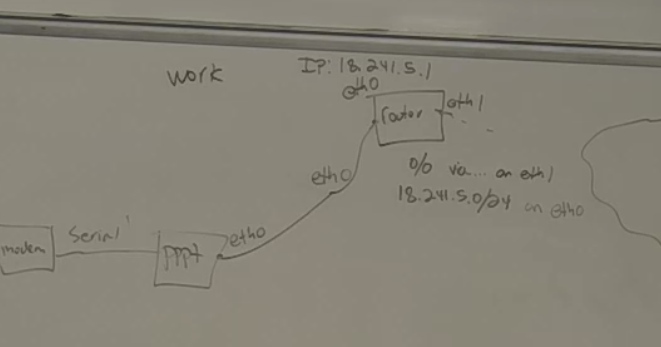 work
IP: 18.241.5.1
eth0
router
eth1
0/0 via... on eth1
eth0
18.241.5.0/24 on eth0
eth0
Serial
modem